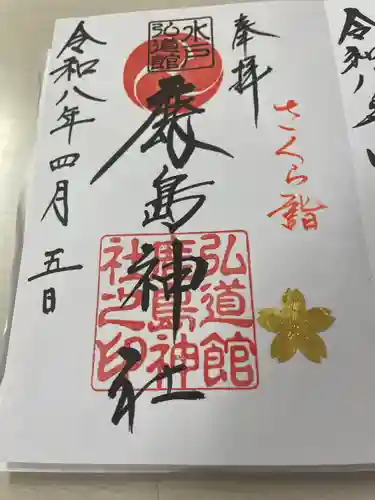 奉拝
さくら詣
水戸
弘道館
鹿島神社
弘道館
鹿島神
社之印
令和八年四月五日
令和八